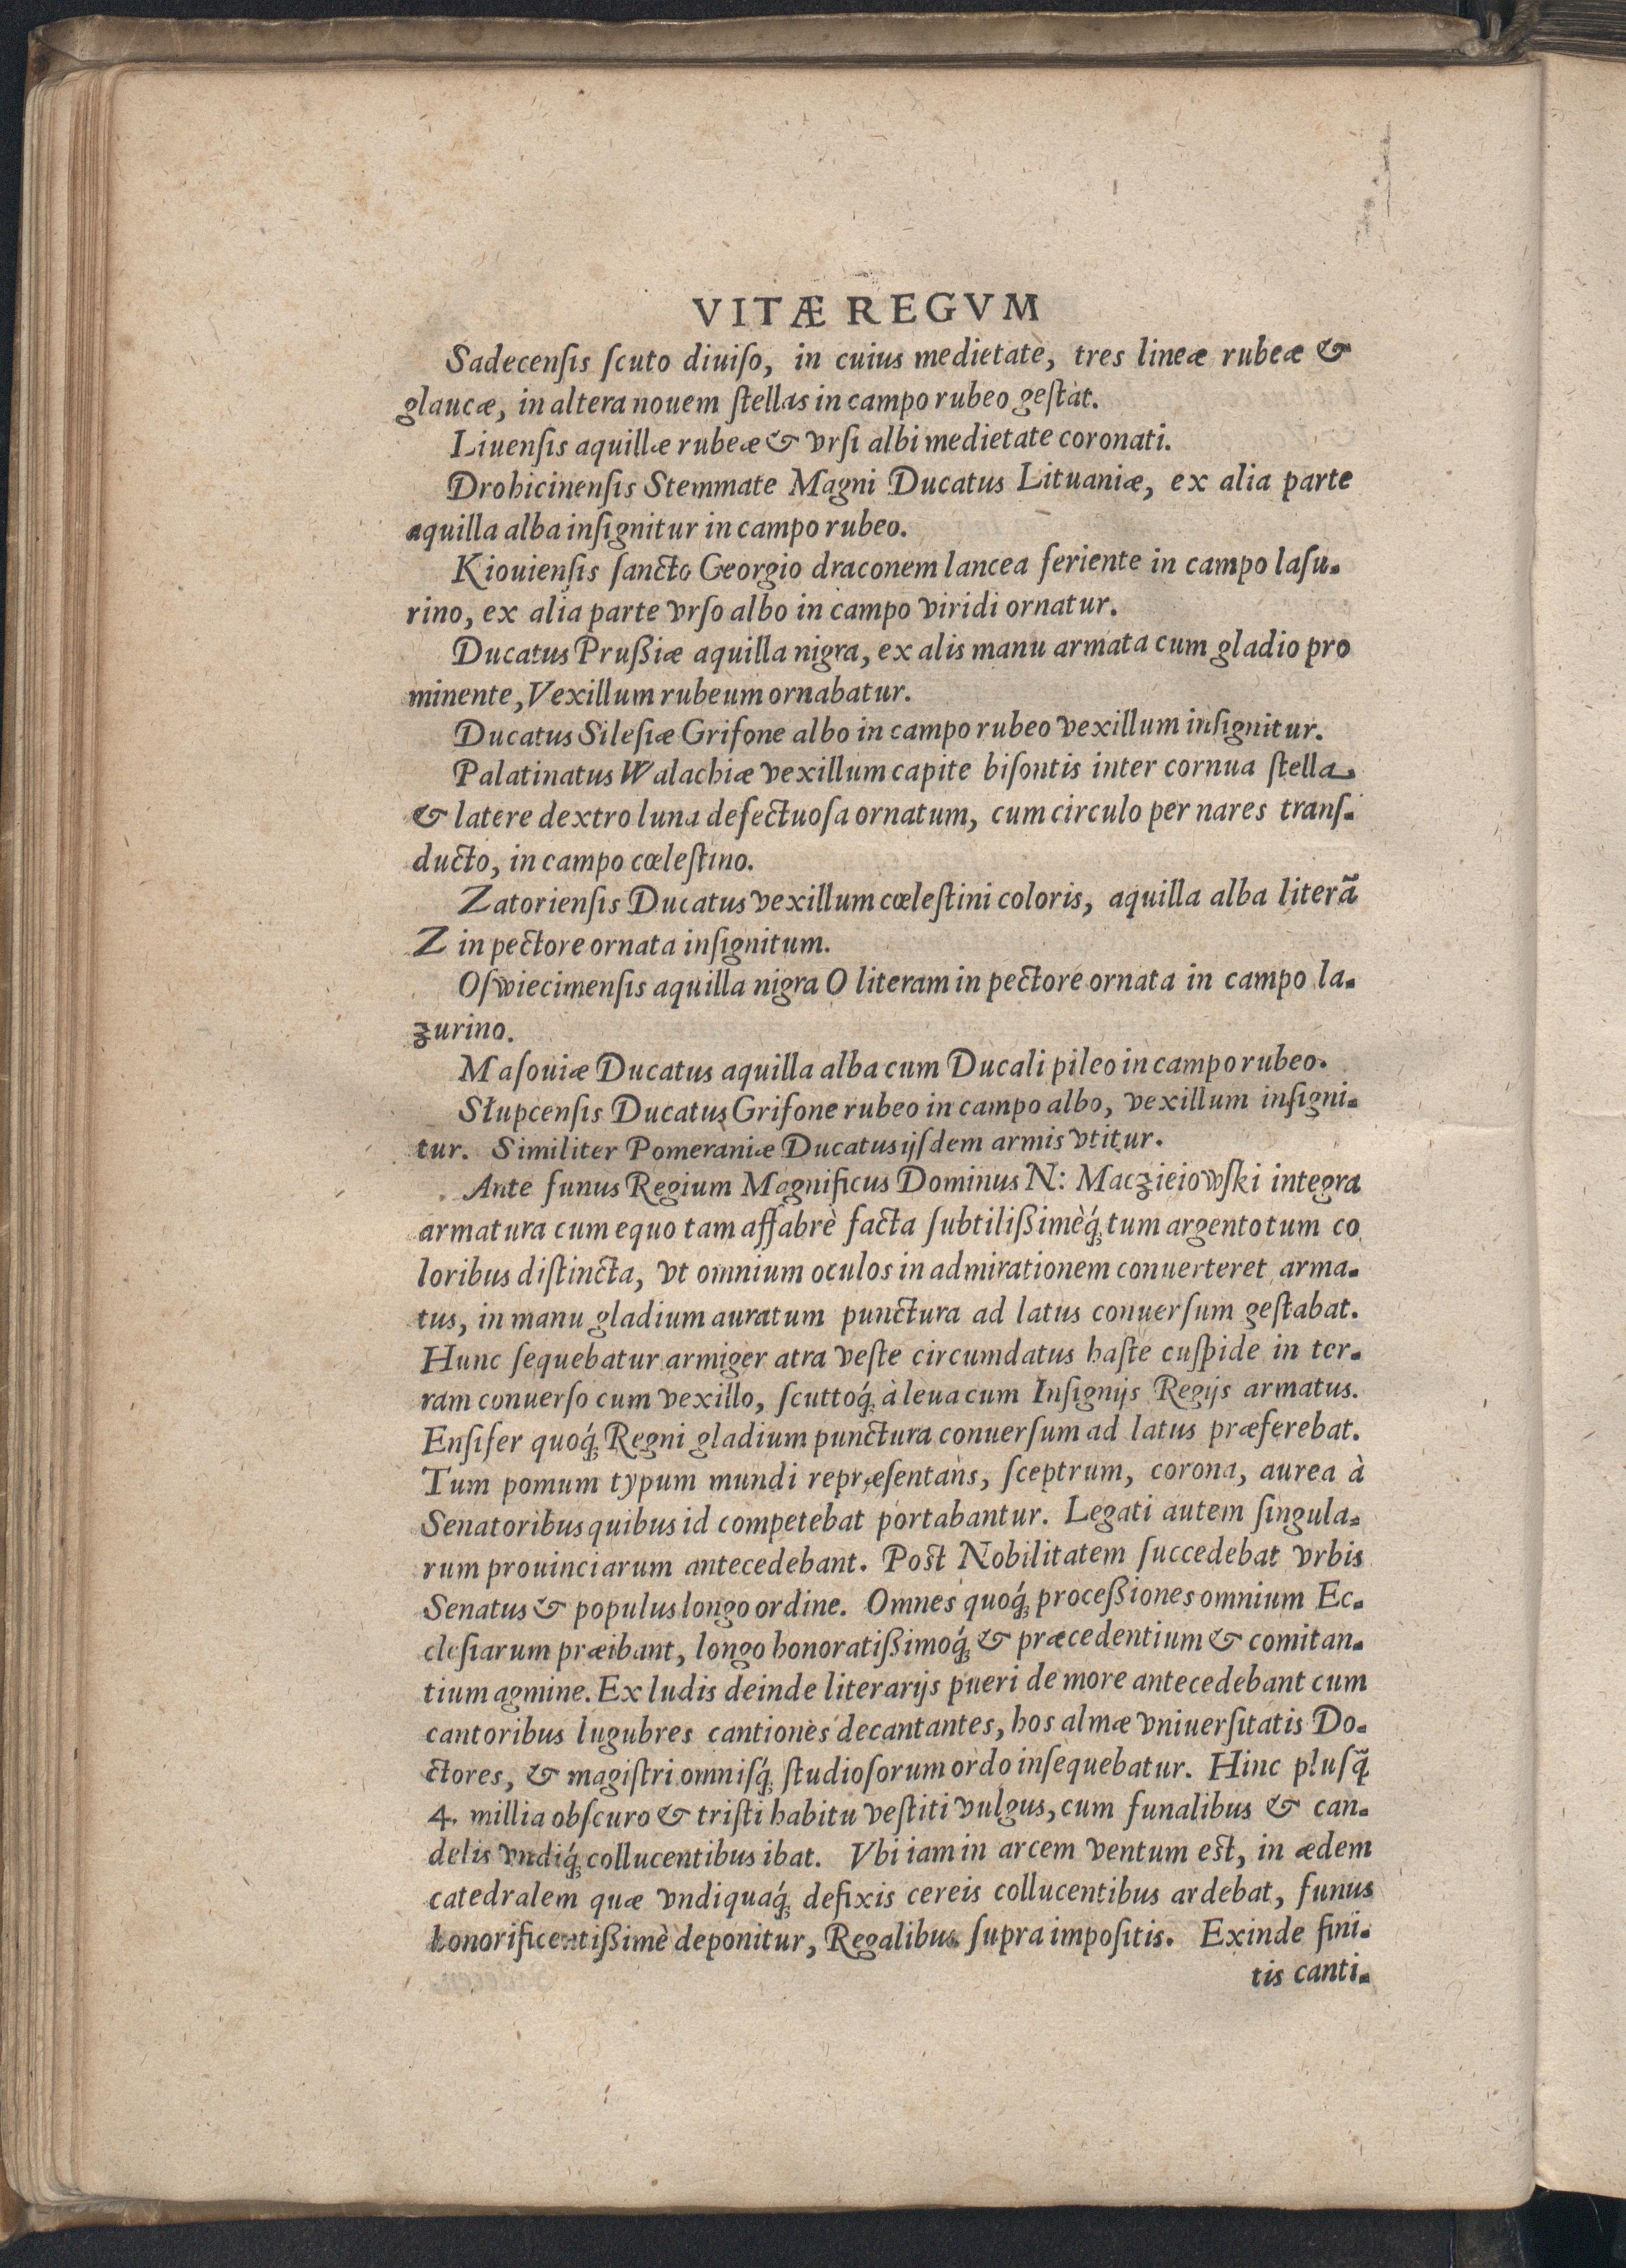 VITÆ REGVM
Sadecenſis ſcuto diuiſo, in cuius medietate, tres lineæ rubeæ &
glaucæ, in altera nouem ſtellas in campo rubeo geſtat.
Liuenſis aquillæ rubeæ & vrſi albi medietate coronati.
Drohicinenſis Stemmate Magni Ducatus Lituaniæ, ex alia parte
aquilla alba inſignitur in campo rubeo.
Kiouienſis ſancto Georgio draconem lancea feriente in campo laſu-
rino, ex alia parte vrſo albo in campo viridi ornatur.
Ducatus Prußiæ aquilla nigra, ex alis manu armata cum gladio pro
minente, Vexillum rubeum ornabatur.
Ducatus Sileſiæ Grifone albo in campo rubeo vexillum inſignitur.
Palatinatus Walachiæ vexillum capite biſontis inter cornua ſtella
& latere dextro luna defectuoſa ornatum, cum circulo per nares tranſ-
ducto, in campo cœleſtino.
Zatorienſis Ducatus vexillum cœleſtini coloris, aquilla alba literã
Z in pectore ornata inſignitum.
Oſwiecimenſis aquilla nigra O literam in pectore ornata in campo la-
zurino.
Maſouiæ Ducatus aquilla alba cum Ducali pileo in campo rubeo.
Słupcenſis Ducatus Grifone rubeo in campo albo, vexillum inſigni-
tur. Similiter Pomeraniæ Ducatus ijſdem armis vtitur.
Ante funus Regium Magnificus Dominus N: Maczieiowſki integra
armatura cum equo tam affabrè facta ſubtilißimèq́; tum argento tum co
loribus diſtincta, vt omnium oculos in admirationem conuerteret arma-
tus, in manu gladium auratum punctura ad latus conuerſum geſtabat.
Hunc ſequebatur armiger atra veſte circumdatus haſte cuſpide in ter-
ram conuerſo cum vexillo, ſcuttoq́; à leua cum Inſignijs Regijs armatus.
Enſifer quoq́; Regni gladium punctura conuerſum ad latus præferebat.
Tum pomum typum mundi repræſentans, ſceptrum, corona, aurea à
Senatoribus quibus id competebat portabantur. Legati autem ſingula-
rum prouinciarum antecedebant. Poſt Nobilitatem ſuccedebat vrbis
Senatus & populus longo ordine. Omnes quoq́; proceßiones omnium Ec-
cleſiarum præibant, longo honoratißimoq́; & præcedentium & comitan-
tium agmine. Ex ludis deinde literarijs pueri de more antecedebant cum
cantoribus lugubres cantiones decantantes, hos almæ vniuerſitatis Do-
ctores, & magiſtri omniſq́; ſtudioſorum ordo inſequebatur. Hinc pluſq̃
4. millia obſcuro & triſti habitu veſtiti vulgus, cum funalibus & can-
delis vndiq́; collucentibus ibat. Vbi iam in arcem ventum eſt, in ædem
catedralem quæ vndiquaq́; defixis cereis collucentibus ardebat, funus
honorificentißimè deponitur, Regalibus ſupra impoſitis. Exinde fini-
tis canti-